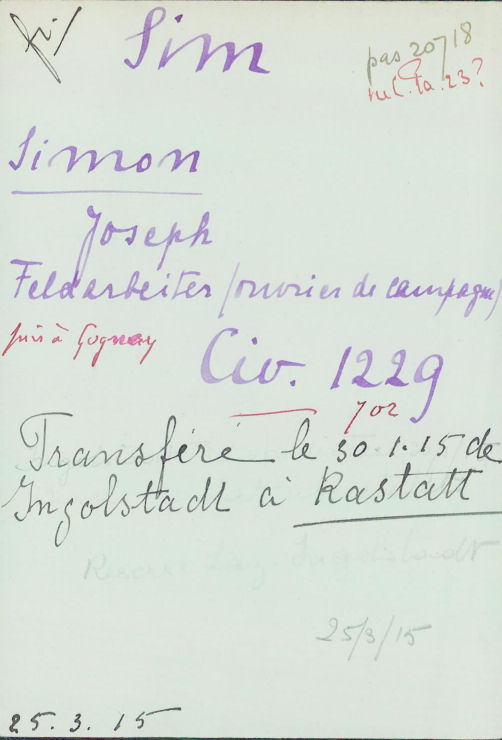 fr.
Sim
pas 20718
rul. ta. 23?
Simon
Joseph
Feldarbeiter (ouvrier de campagne)
pris à Gognay
Civ. 1229
702
Transféré le 30 1.15 de
Ingolstadt à Rastatt
Reserve Laz. Ingolstadt
25/3/15
25. 3. 15